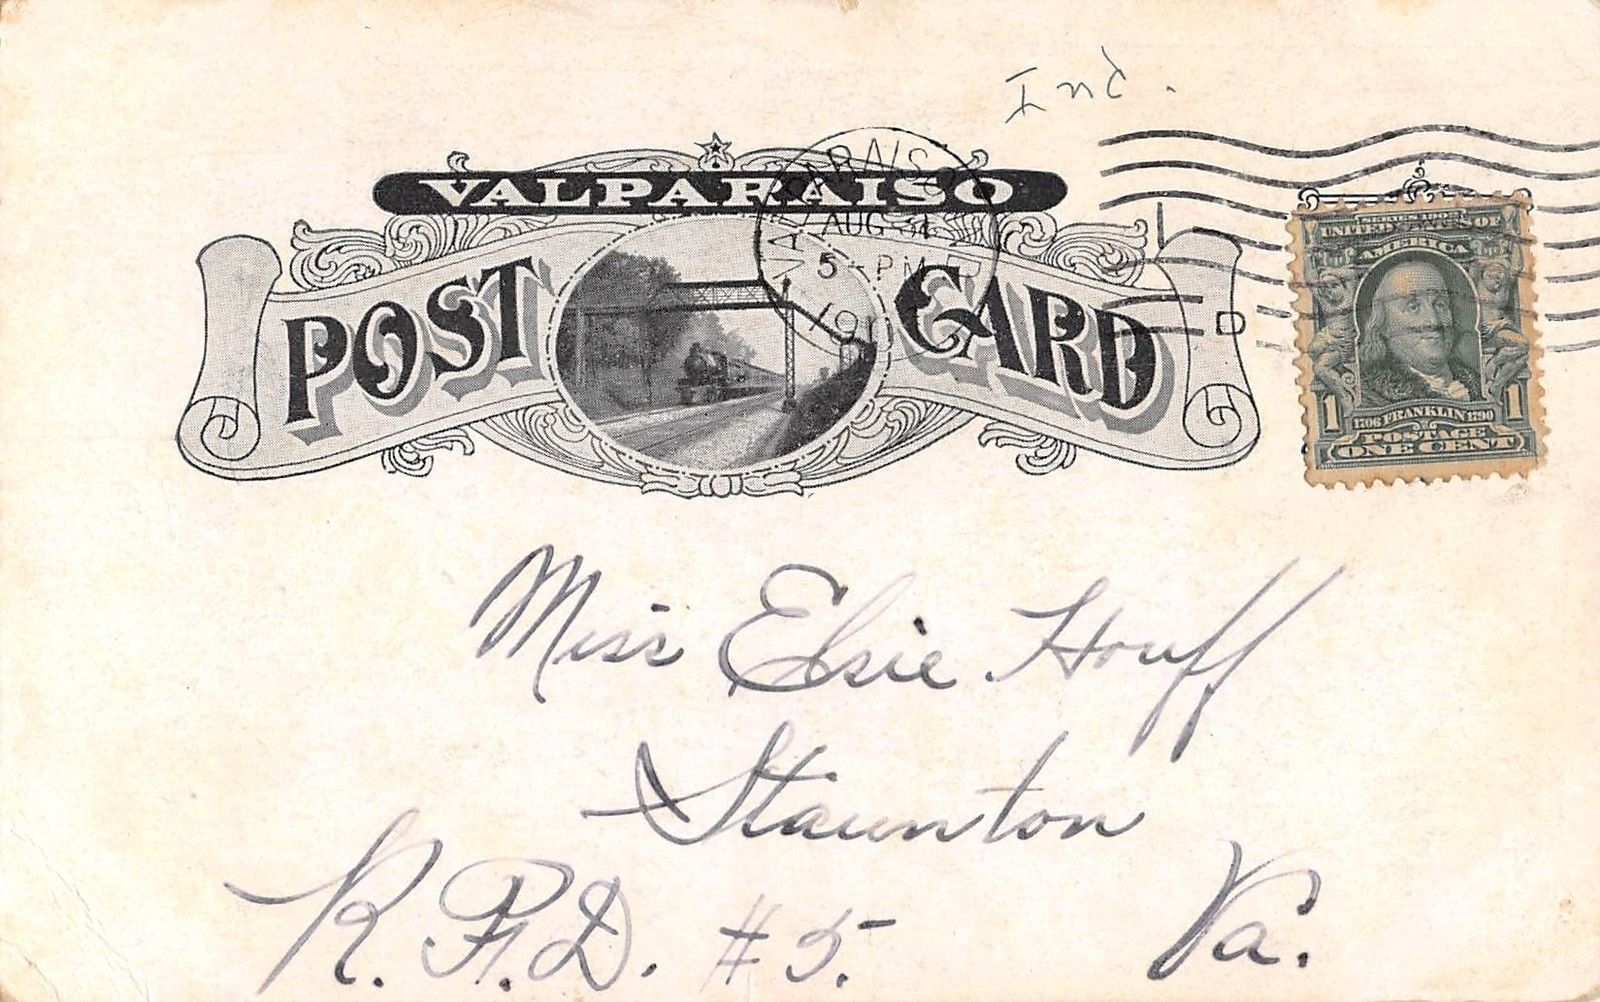 Ind.
VALPARAISO
POST CARD
VALPARAISO
AUG
5 - PM
191
D
UNITED STATES OF
AMERICA
1 1706 FRANKLIN 1790 1
POSTAGE
ONE CENT
Miss Elsie Houff
Staunton
R.F.D. #5. Va.